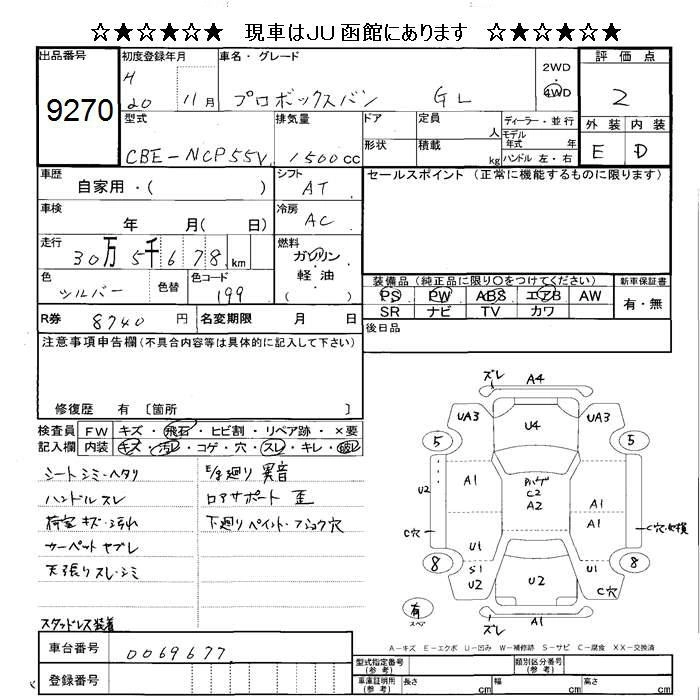 ☆★☆★☆★ 現車はJU函館にあります ☆★☆★☆★
出品番号 初度登録年月 車名・グレード 2WD 評価点
9270 H 20 11月 プロボックスバン GL 4WD 2
型式 排気量 ドア 定員 人 ディーラー・並行 外装 内装
CBE-NCP55V 1500cc 形状 積載 kg モデル年式 年 ハンドル 左・右 E D
車歴 自家用・( ) シフト AT セールスポイント(正常に機能するものに限ります)
車検 年 月( 日) 冷房 AC
走行 30万5千678km 燃料 ガソリン 軽油 ( )
色 シルバー 色替 色コード 199
装備品(純正品に限り○をつけてください) 新車保証書
PS PW ABS エアB AW 有・無
SR ナビ TV カワ
R券 8740円 名変期限 月 日 後日品
注意事項申告欄(不具合内容等は具体的に記入して下さい)
修復歴 有 〔箇所 〕
検査員記入欄 FW キズ・飛石・ヒビ割・リペア跡・×要
内装 キズ・汚レ・コゲ・穴・スレ・キレ・破レ
シートシミ・ヘタリ E/g廻り異音
ハンドルスレ ロアサポート歪
荷室キズ・汚れ 下廻りペイント・フショク穴
カーペットヤブレ
天張りスレ・シミ
スタッドレス装着
ズレ A4
UA3 U4 UA3
5 5
U2 A1 Pハゲ C2 A2 A1
C穴 A1
U1
8 S1 U2 U2 U1 8
C穴
有 スペア ズレ A1
A-キズ E-エクボ U-凹み W-補修跡 S-サビ C-腐食 XX-交換済
車台番号 0069677
登録番号
型式指定番号(参考) 類別区分番号(参考)
車庫証明用(参考) 長さ cm 幅 cm 高さ cm